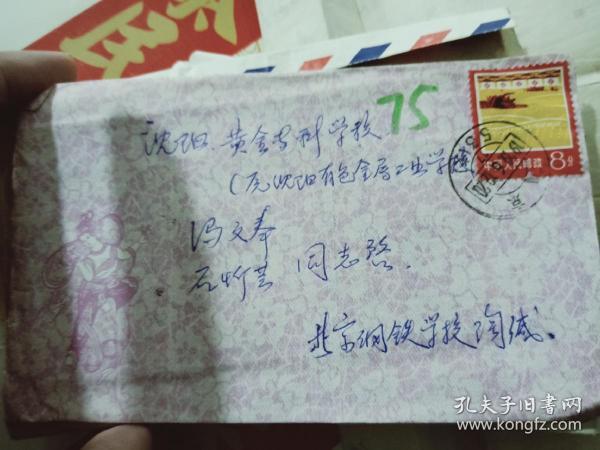 75
沈阳黄金专科学校
(原沈阳有色金属工业学校
冯文奉
石竹芸 同志启.
北京钢铁学校陶缄.
中国人民邮政
8分
孔夫子旧书网
www.kongfz.com